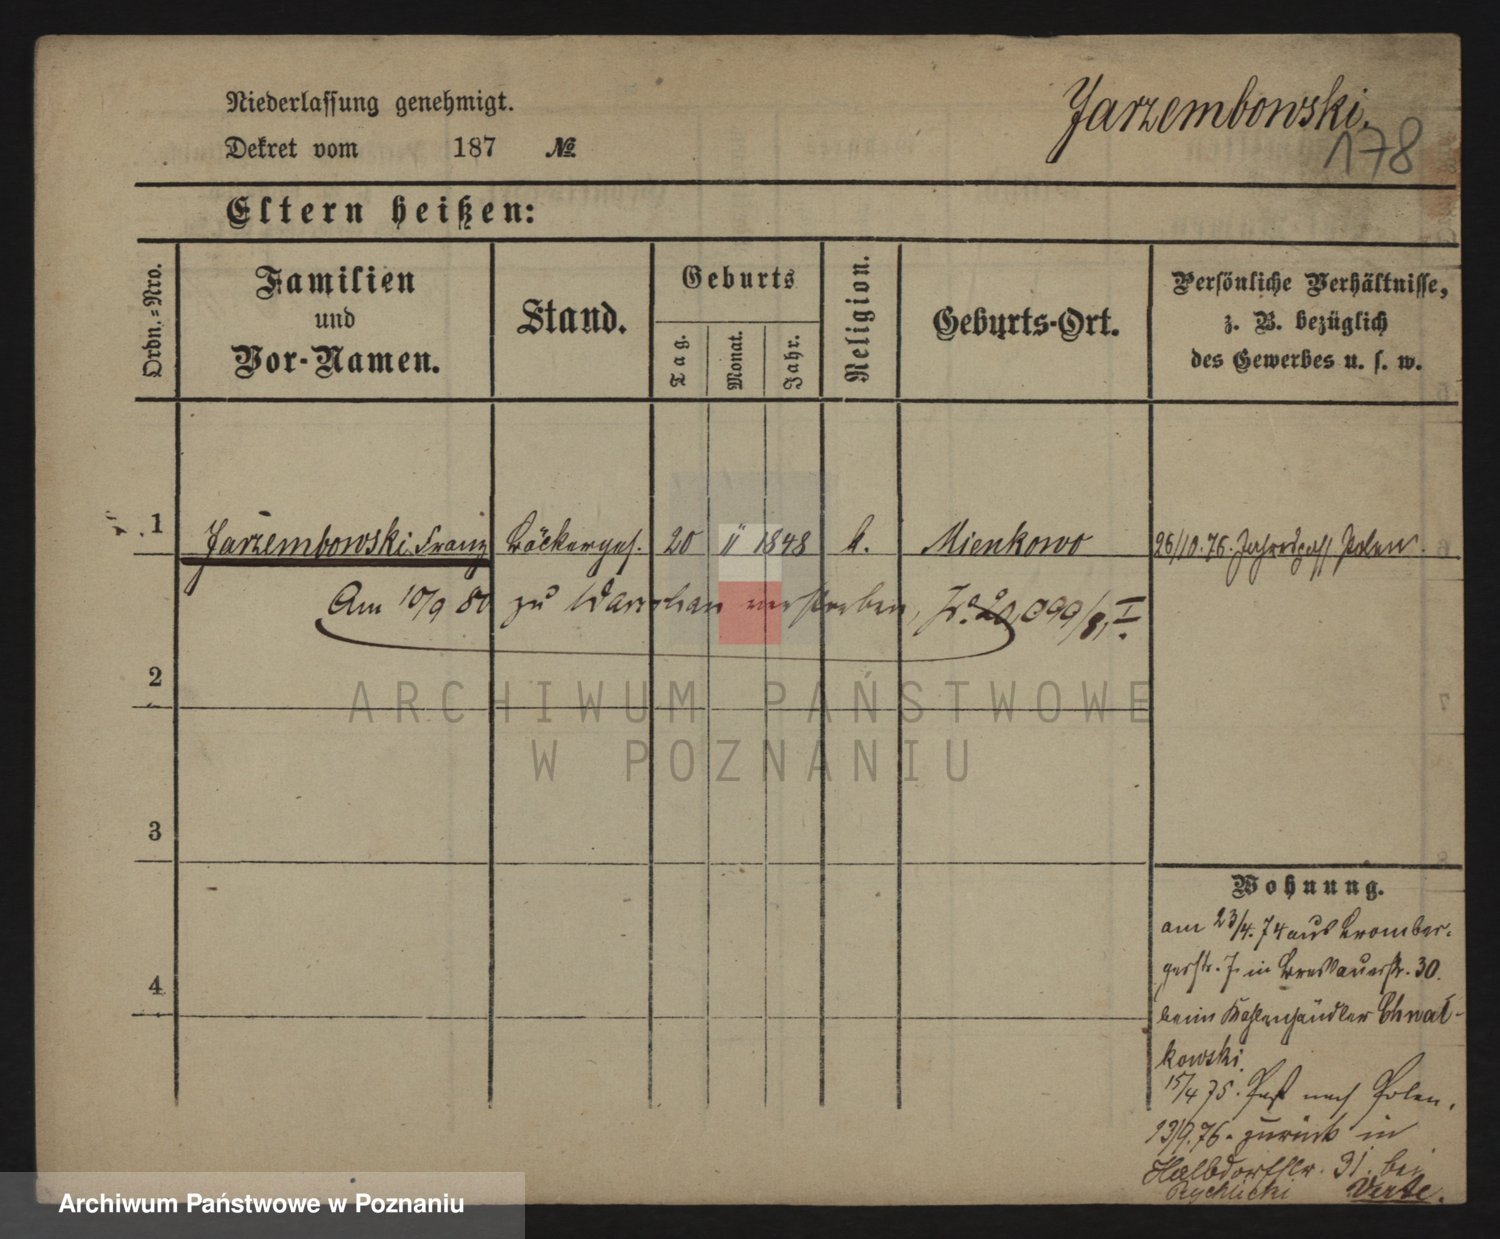 Niederlassung genehmigt.
Jarzembowski.
Dekret vom 187 №
178
Eltern heißen:
Ordn.-Nro.
Familien und Vor-Namen.
Stand.
Geburts
Tag.
Monat.
Jahr.
Religion.
Geburts-Ort.
Persönliche Verhältnisse,
z. B. bezüglich
des Gewerbes u. s. w.
1 Jarzembowski, Franz Bäckerges. 20 11 1848 k. Mienkowo 26/10.76. Jahrespaß Polen.
Am 10/9 80 zu Warschau verstorben, 099/81 I.
2
3
4
Wohnung.
am 23/4.74 aus Bromber-
gerstr. 7. in Breslauerstr. 30.
beim Kohlenhändler Chwał-
kowski.
15/4 75. Paß nach Polen.
13/9.76. zurück in
Halbdorfstr. 31. bei
Rychlicki Verte.
ARCHIWUM PAŃSTWOWE
W POZNANIU
Archiwum Państwowe w Poznaniu